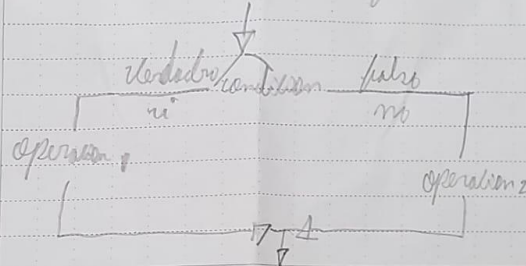 Verdadro condition falso
si no
operation 1
operation 2